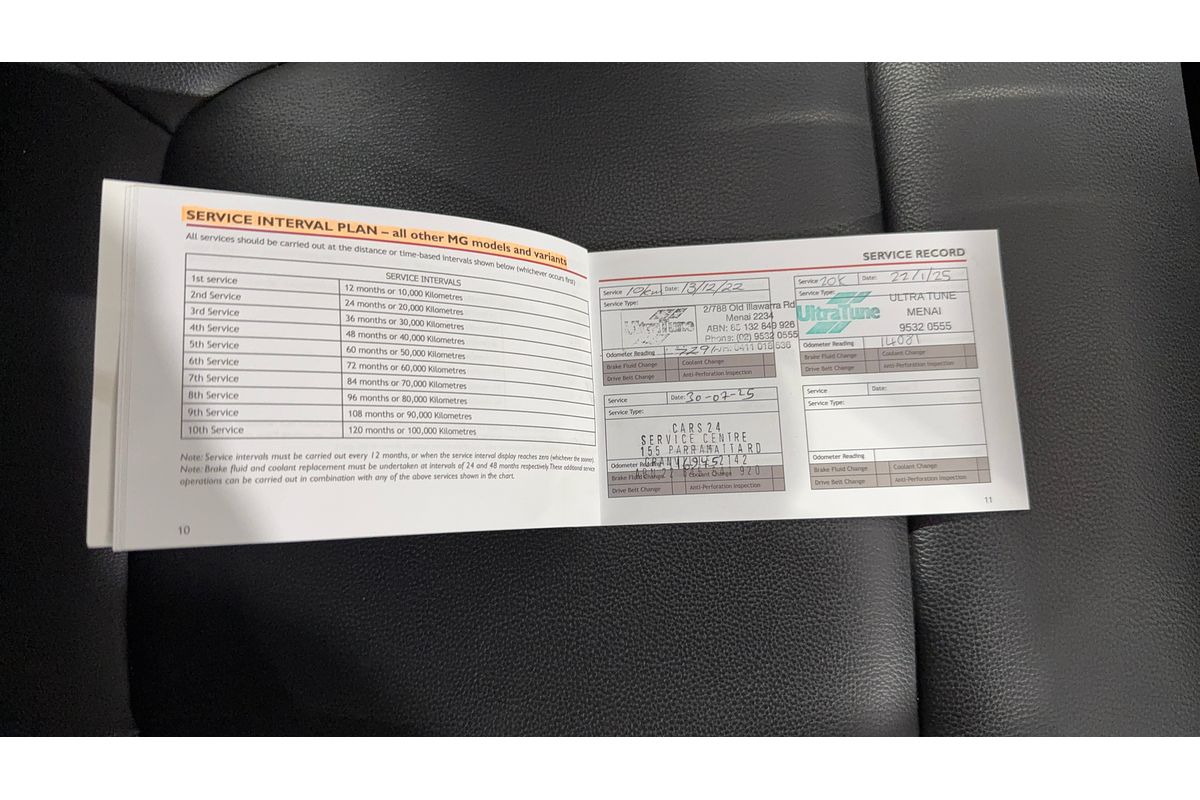 SERVICE INTERVAL PLAN – all other MG models and variants
All services should be carried out at the distance or time-based intervals shown below (whichever occurs first)
SERVICE INTERVALS
1st service 12 months or 10,000 Kilometres
2nd Service 24 months or 20,000 Kilometres
3rd Service 36 months or 30,000 Kilometres
4th Service 48 months or 40,000 Kilometres
5th Service 60 months or 50,000 Kilometres
6th Service 72 months or 60,000 Kilometres
7th Service 84 months or 70,000 Kilometres
8th Service 96 months or 80,000 Kilometres
9th Service 108 months or 90,000 Kilometres
10th Service 120 months or 100,000 Kilometres
Note: Service intervals must be carried out every 12 months, or when the service interval display reaches zero (whichever the sooner).
Note: Brake fluid and coolant replacement must be undertaken at intervals of 24 and 48 months respectively. These additional service
operations can be carried out in combination with any of the above services shown in the chart.
10
SERVICE RECORD
Service Date: 13/12/22
Service Type:
UltraTune
2/788 Old Illawarra Rd
Menai 2234
ABN: 85 132 849 926
Phone: (02) 9532 0555
Odometer Reading
Brake Fluid Change Coolant Change
Drive Belt Change Anti-Perforation Inspection
Service 20K Date: 22/1/25
Service Type:
UltraTune
ULTRA TUNE
MENAI
9532 0555
Odometer Reading 14081
Brake Fluid Change Coolant Change
Drive Belt Change Anti-Perforation Inspection
Service Date: 30-07-25
Service Type:
CARS24
SERVICE CENTRE
155 PARRAMATTA RD
Odometer Reading 16945
Brake Fluid Change Coolant Change
Drive Belt Change Anti-Perforation Inspection
Service Date:
Service Type:
Odometer Reading
Brake Fluid Change Coolant Change
Drive Belt Change Anti-Perforation Inspection
11